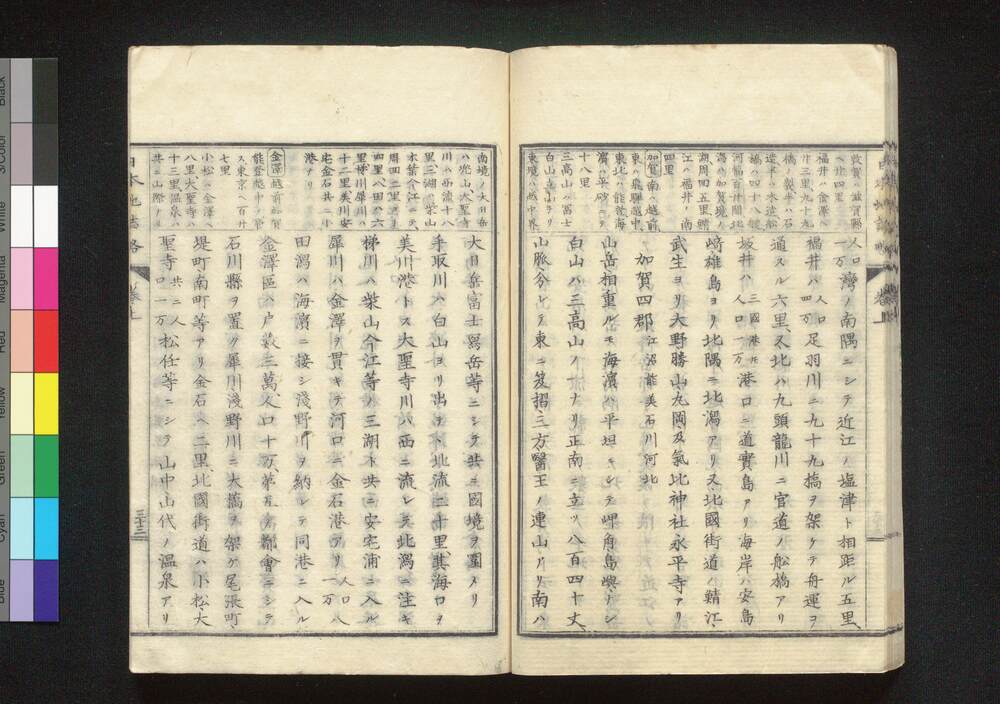 敦賀ハ滋賀縣
ヘ廿四里
福井ハ金澤ヘ
廿三里九十九
橋ノ製半ハ石
造半ハ木造松
橋ハ四十八艘
河幅百廿間北
潟ハ加賀境ノ
湖周四五里鯖
江ハ福井ノ南
四里
加賀 南ハ越前
東ハ飛驒越中
東北ハ能登海
濱ハ平砂
十八里
三高山ハ富士
白山立山ナリ
東境ハ越中界
人口一万 灣ノ南隅ニシテ近江ノ塩津ト相距ル五里、
福井ハ 人口四万 足羽川ニ九十九橋ヲ架ケテ舟運ヲ
通スル六里、又北ハ九頭龍川ニ官道ノ船橋アリ
坂井ハ 三國港凡人口一万 港口ニ道實島アリ海岸ハ安島
﨑雄島ヨリ北隅ニ北潟アリ又北國街道ノ鯖江、
武生ヨリ大野勝山丸岡及氣比神社永平寺アリ
加賀四郡 江沼能美石川河北
山岳相重ルモ海濱ハ平坦ニシテ岬角島嶼ナシ
白山ハ三高山ノ一ナリ正南ニ立ツ八百四十丈、
山脈分レテ東ニ笈摺三方醫王ノ連山アリ南ハ
南境ノ大日岳
ハ兜山大聖寺
川ハ西流十八
里三湖ハ柴山
木葉今江ニテ
周四二里
四里八田ハ六
里梯川犀川ハ
十二里美川安
宅金石共ニ小
港ナリ
金澤 越前加賀
能登越中ヲ管
ス東京ヘ百廿
七里
小松ハ金澤ヘ
八里大聖寺ハ
十三里温泉ハ
共ニ山際ナリ
大日岳富士寫岳等ニシテ共ニ國境ヲ圍メリ
手取川ハ白山ヨリ出テ北流二十里、其海口ヲ
美川港トス大聖寺川ハ西ニ流レテ北潟ニ注キ
梯川ハ柴山今江等ノ三湖ト共ニ安宅浦ニ入ル
犀川ハ金澤ヲ貫キテ河口ニ金石港アリ 人口一万 八
田潟ハ海濱ニ接シ淺野川ヲ納レテ同港ニ入ル
金澤區ハ戸数三萬人口十万、第五ノ都會ニシテ
石川縣ヲ置ク犀川淺野川ニ大橋ヲ架ケ尾張町、
堤町南町等アリ金石ヘ二里、北國街道ハ小松、大
聖寺 共ニ人口一万 松任等ニシテ山中山代ノ温泉アリ
日本地誌略
卷上
三十三